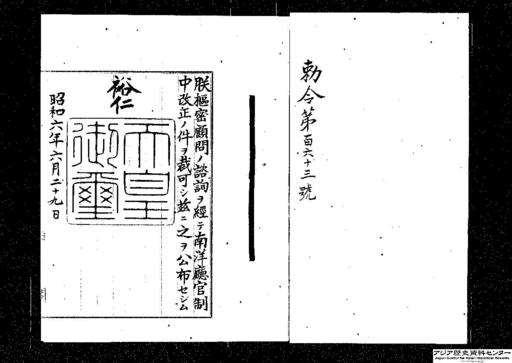 勅令第百六十三號
朕樞密顧問ノ諮詢ヲ經テ南洋廳官制
中改正ノ件ヲ裁可シ茲ニ之ヲ公布セシム
裕仁
天皇御璽
昭和六年六月二十九日
アジア歴史資料センター
Japan Center for Asian Historical Records